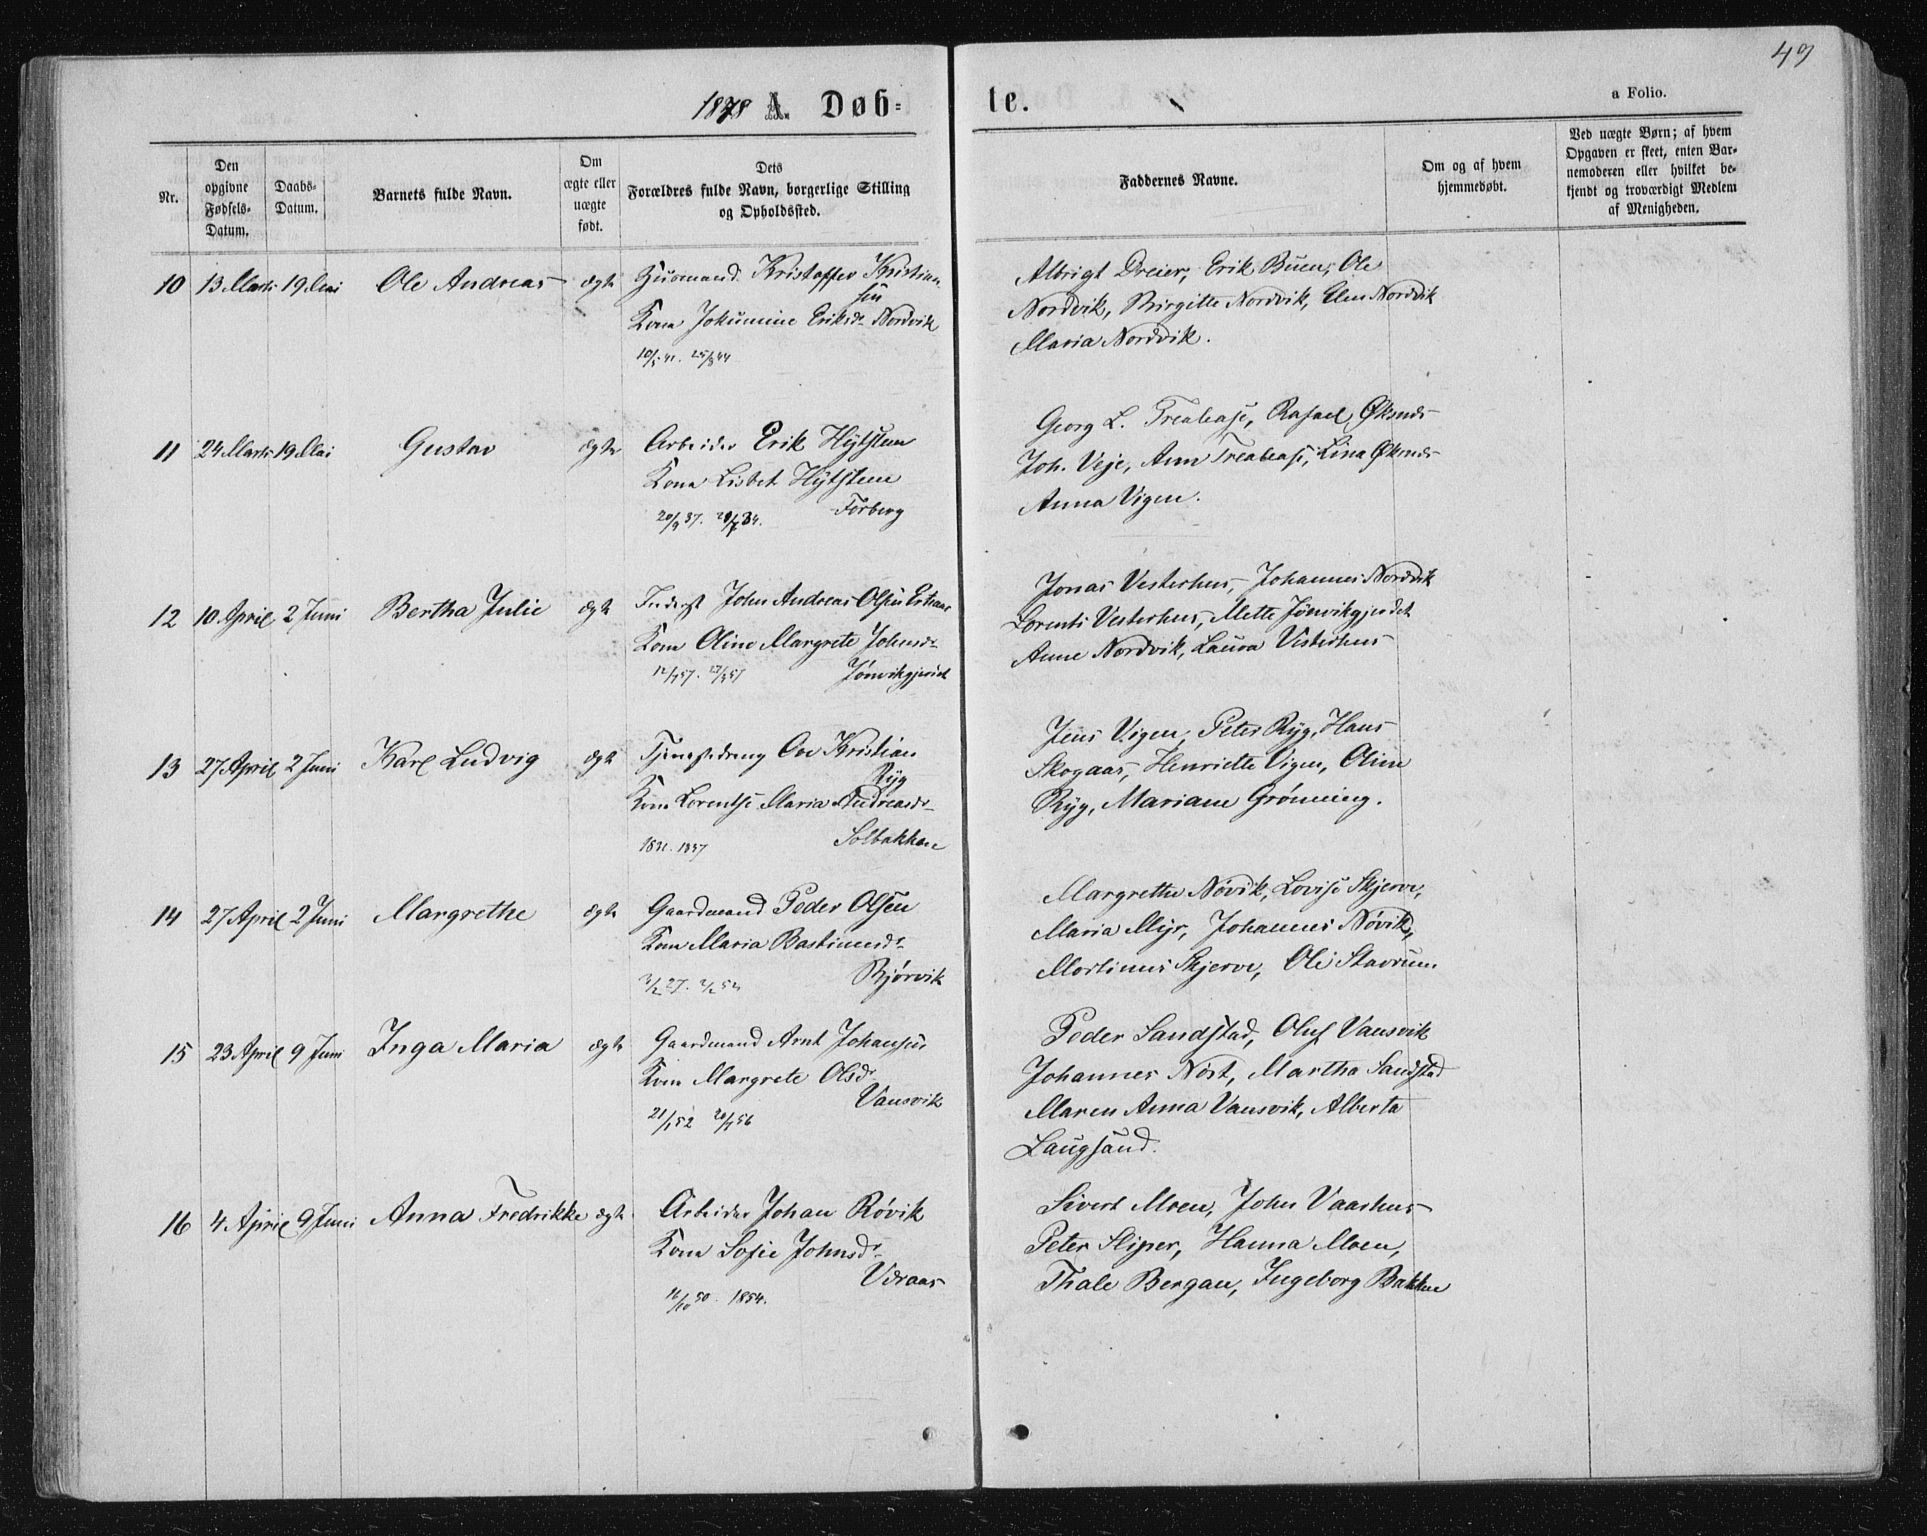 49
1878 A. Døb=
te.
a Folio.
Nr.
Den
opgivne
Fødsels-
Datum.
Daabs-
Datum.
Barnets fulde Navn.
Om
ægte eller
uægte
født.
Dets
Forældres fulde Navn, borgerlige Stilling
og Opholdssted.
Faddernes Navne.
Om og af hvem
hjemmedøbt.
Ved uægte Børn; af hvem
Opgaven er skeet, enten Bar-
nemoderen eller hvilket be-
kjendt og troværdigt Medlem
af Menigheden.
10 13 Marts 19 Mai Ole Andreas ægte Huusmand Kristoffer Kristian
sen
Kone Jokumine Eriksd. Nordvik
10/5 41. 25/8 44
Albrigt Dreier, Erik Buen, Ole
Nordvik, Birgitte Nordvik, Elen Nordvik
Maria Nordvik.
11 24 Marts 19 Mai Gustav ægte Arbeider Erik Hytsten
Kone Lisbet Hytsten
20/9 37. Forberg
Georg L. Trealease, Rafael Øksnes
Joh. Veje, Ann Trealease, Lina Øksnes
Anna Vigen.
12 10 April 2 Juni Bertha Julie ægte Inderst John Andreas Olsen
Kone Oline Margrete Johnsd.
Jønvikgjerdet
Jonas Vesterhus, Johannes Nordvik
Lorents Vesterhus, Mette Jønvikgjerdet
Anne Nordvik, Laura Vesterhus
13 27 April 2 Juni Karl Ludvig ægte Tjenestedreng Ove Kristian
Ryg
Kone Lorentse Maria Andreasd.
Solbakken
Jens Vigen, Peter Ryg, Hans
Skogaas, Henriette Vigen, Oline
Ryg, Mariane Grønning.
14 27 April 2 Juni Margrethe ægte Gaardmand Peder Olsen
Kone Maria Bastiansd.
Bjørvik
Margrethe Nøvik, Lovise Skjerve,
Maria Myr, Johannes Nøvik,
Martinus Skjerve, Ole Stavrum.
15 23 April 9 Juni Inga Maria ægte Gaardmand Arnt Johansen
Kone Margrete Olsd.
Vansvik
21/1 52 20/1 56
Peder Sandstad, Oluf Vansvik
Johannes Nøst, Martha Sandstad
Maren Anna Vansvik, Alberta
Laugsand.
16 4. April 9 Juni Anna Fredrikke ægte Arbeider Johan Røvik
Kone Sofie Johnsd.
Vdraas
1854.
Sivert Moen, John Vaarhus
Peter Sliper, Hanna Moen,
Thale Bergan, Ingeborg Bakken